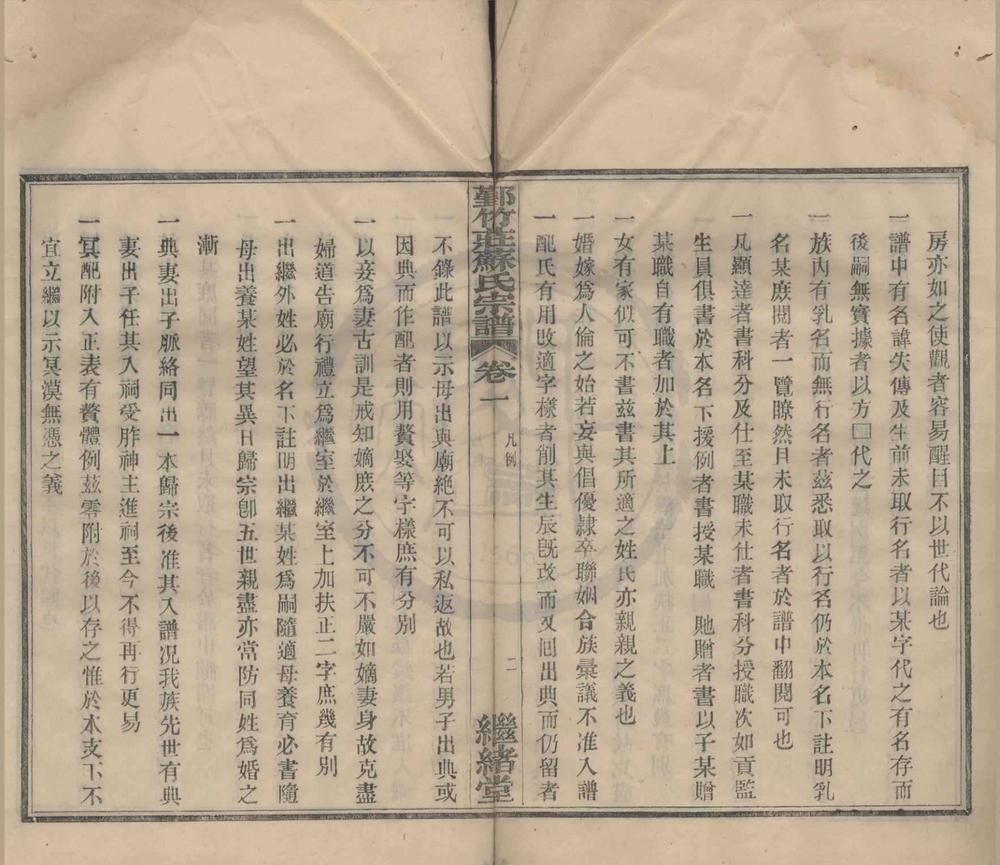 房亦如之使觀者容易醒目不以世代論也
一譜中有名諱失傳及生前未取行名者以某字代之有名存而
後嗣無實據者以方囗代之
一族內有乳名而無行名者茲悉取以行名仍於本名下註明乳
名某庶閱者一覽瞭然且未取行名者於譜中翻閱可也
一凡顯達者書科分及仕至某職未仕者書科分授職次如貢監
生員俱書於本名下援例者書授某職　貤贈者書以子某贈
某職自有職者加於其上
一女有家似可不書茲書其所適之姓氏亦親親之義也
一婚嫁爲人倫之始若妄與倡優隷卒聯姻合族彙議不准入譜
一配氏有用敗適字樣者削其生辰旣改而又囘出典而仍留者
鄞竹莊蘇氏宗譜　卷一　凡例　二　繼緒堂
不錄此譜以示母出與廟絶不可以私返故也若男子出典或
因典而作配者則用贅娶等字樣庶有分別
一以妾爲妻古訓是戒知嫡庶之分不可不嚴如嫡妻身故克盡
婦道告廟行禮立爲繼室於繼室上加扶正二字庶幾有別
一出繼外姓必於名下註明出繼某姓爲嗣隨適母養育必書隨
母出養某姓望其異日歸宗卽五世親盡亦當防同姓爲婚之
漸
一典妻出子脈絡同出一本歸宗後准其入譜况我族先世有典
妻出子任其入祠受胙神主進祠至今不得再行更易
一冥配附入正表有贅體例茲零附於後以存之惟於本支下不
宜立繼以示冥漠無憑之義